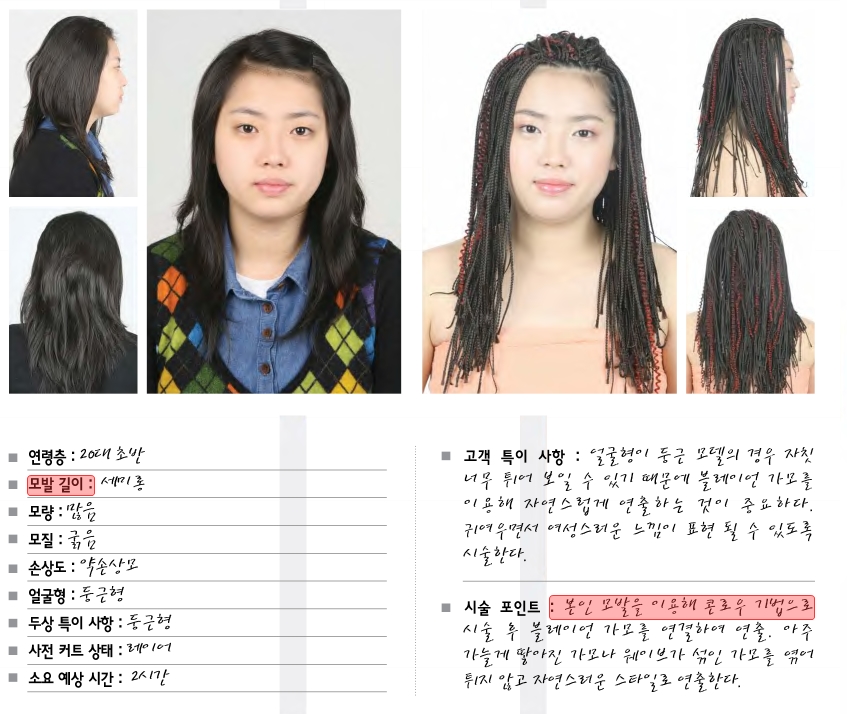 연령층 : 20대 초반
모발 길이 : 세미롱
모량 : 많음
모질 : 굵음
손상도 : 약손상모
얼굴형 : 둥근형
두상 특이 사항 : 둥근형
사전 커트 상태 : 레이어
소요 예상 시간 : 2시간
고객 특이 사항 : 얼굴형이 둥근 모델의 경우 자칫
너무 튀어 보일 수 있기 때문에 블레이언 가모를
이용해 자연스럽게 연출하는 것이 중요하다.
귀여우면서 여성스러운 느낌이 표현 될 수 있도록
시술한다.
시술 포인트 : 본인 모발을 이용해 콘로우 기법으로
시술 후 블레이언 가모를 연결하여 연출. 아주
가늘게 땋아진 가모나 웨이브가 섞인 가모를 엮어
튀지 않고 자연스러운 스타일로 연출한다.